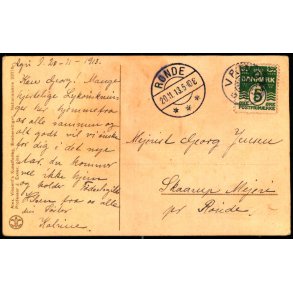 Agri D. 20-11-1913.
Kære Georg! Mange
hjertelige Lykønskninger
her hjemmefra
os alle sammen og
alt godt vil vi ønske
for dig i det nye
Aar, du kommer
vel ikke hjem
og holder Fødselsdag
Hilsen fra os alle
din Søster
Katrine.
RØNDE
20.11.13.5-6E
DANMARK
5
POSTFRIMÆRKE
Mejerist Georg Jensen
Skaarup Mejeri
pr Rønde